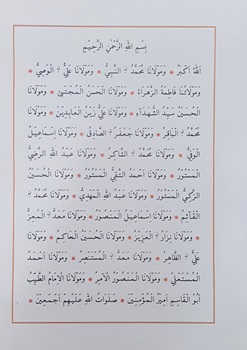 بِسْمِ اللهِ الرَّحْمٰنِ الرَّحِيْمِ
اَللهُ اَكْبَرُ * وَمَوْلَانَا مُحَمَّدُ ࣙالنَّبِيُّ * وَمَوْلَانَا عَلِيُّ ࣙالْوَصِيُّ *
وَمَوْلَاتُنَا فَاطِمَةُ الزَّهْرَاءُ * وَمَوْلَانَا الْحَسَنُ الْمُجْتَبٰى * وَمَوْلَانَا
الْحُسَيْنُ سَيِّدُ الشُّهَدَآءِ * وَمَوْلَانَا عَلِيُّ زَيْنُ الْعَابِدِيْنَ * وَمَوْلَانَا
مُحَمَّدُ ࣙالْبَاقِرُ * وَمَوْلَانَا جَعْفَرُ ࣙالصَّادِقُ * وَمَوْلَانَا اِسْمَاعِيْلُ
الْوَفِيُّ * وَمَوْلَانَا مُحَمَّدُ ࣙالشَّاكِرُ * وَمَوْلَانَا عَبْدُ اللهِ الرَّضِيُّ
الْمَسْتُوْرُ * وَمَوْلَانَا اَحْمَدُ التَّقِيُّ الْمَسْتُوْرُ * وَمَوْلَانَا الْحُسَيْنُ
الزَّكِيُّ الْمَسْتُوْرُ * وَمَوْلَانَا عَبْدُ اللهِ الْمَهْدِيُّ * وَمَوْلَانَا مُحَمَّدُ
الْقَائِمُ * وَمَوْلَانَا اِسْمَاعِيْلُ الْمَنْصُوْرُ * وَمَوْلَانَا مَعَدُّ ࣙالْمُعِزُّ
وَمَوْلَانَا نِزَارُ ࣙالْعَزِيْزُ * وَمَوْلَانَا الْحُسَيْنُ الْحَاكِمُ * وَمَوْلَانَا
عَلِيُّ ࣙالظَّاهِرُ * وَمَوْلَانَا مَعَدُّ ࣙالْمُسْتَنْصِرُ * وَمَوْلَانَا اَحْمَدُ
الْمُسْتَعْلِيْ * وَمَوْلَانَا الْمَنْصُوْرُ الْاٰمِرُ * وَمَوْلَانَا الْاِمَامُ الطَّيِّبُ
اَبُو الْقَاسِمِ اَمِيْرُ الْمُؤْمِنِيْنَ * صَلَوَاتُ اللهِ عَلَيْهِمْ اَجْمَعِيْنَ *